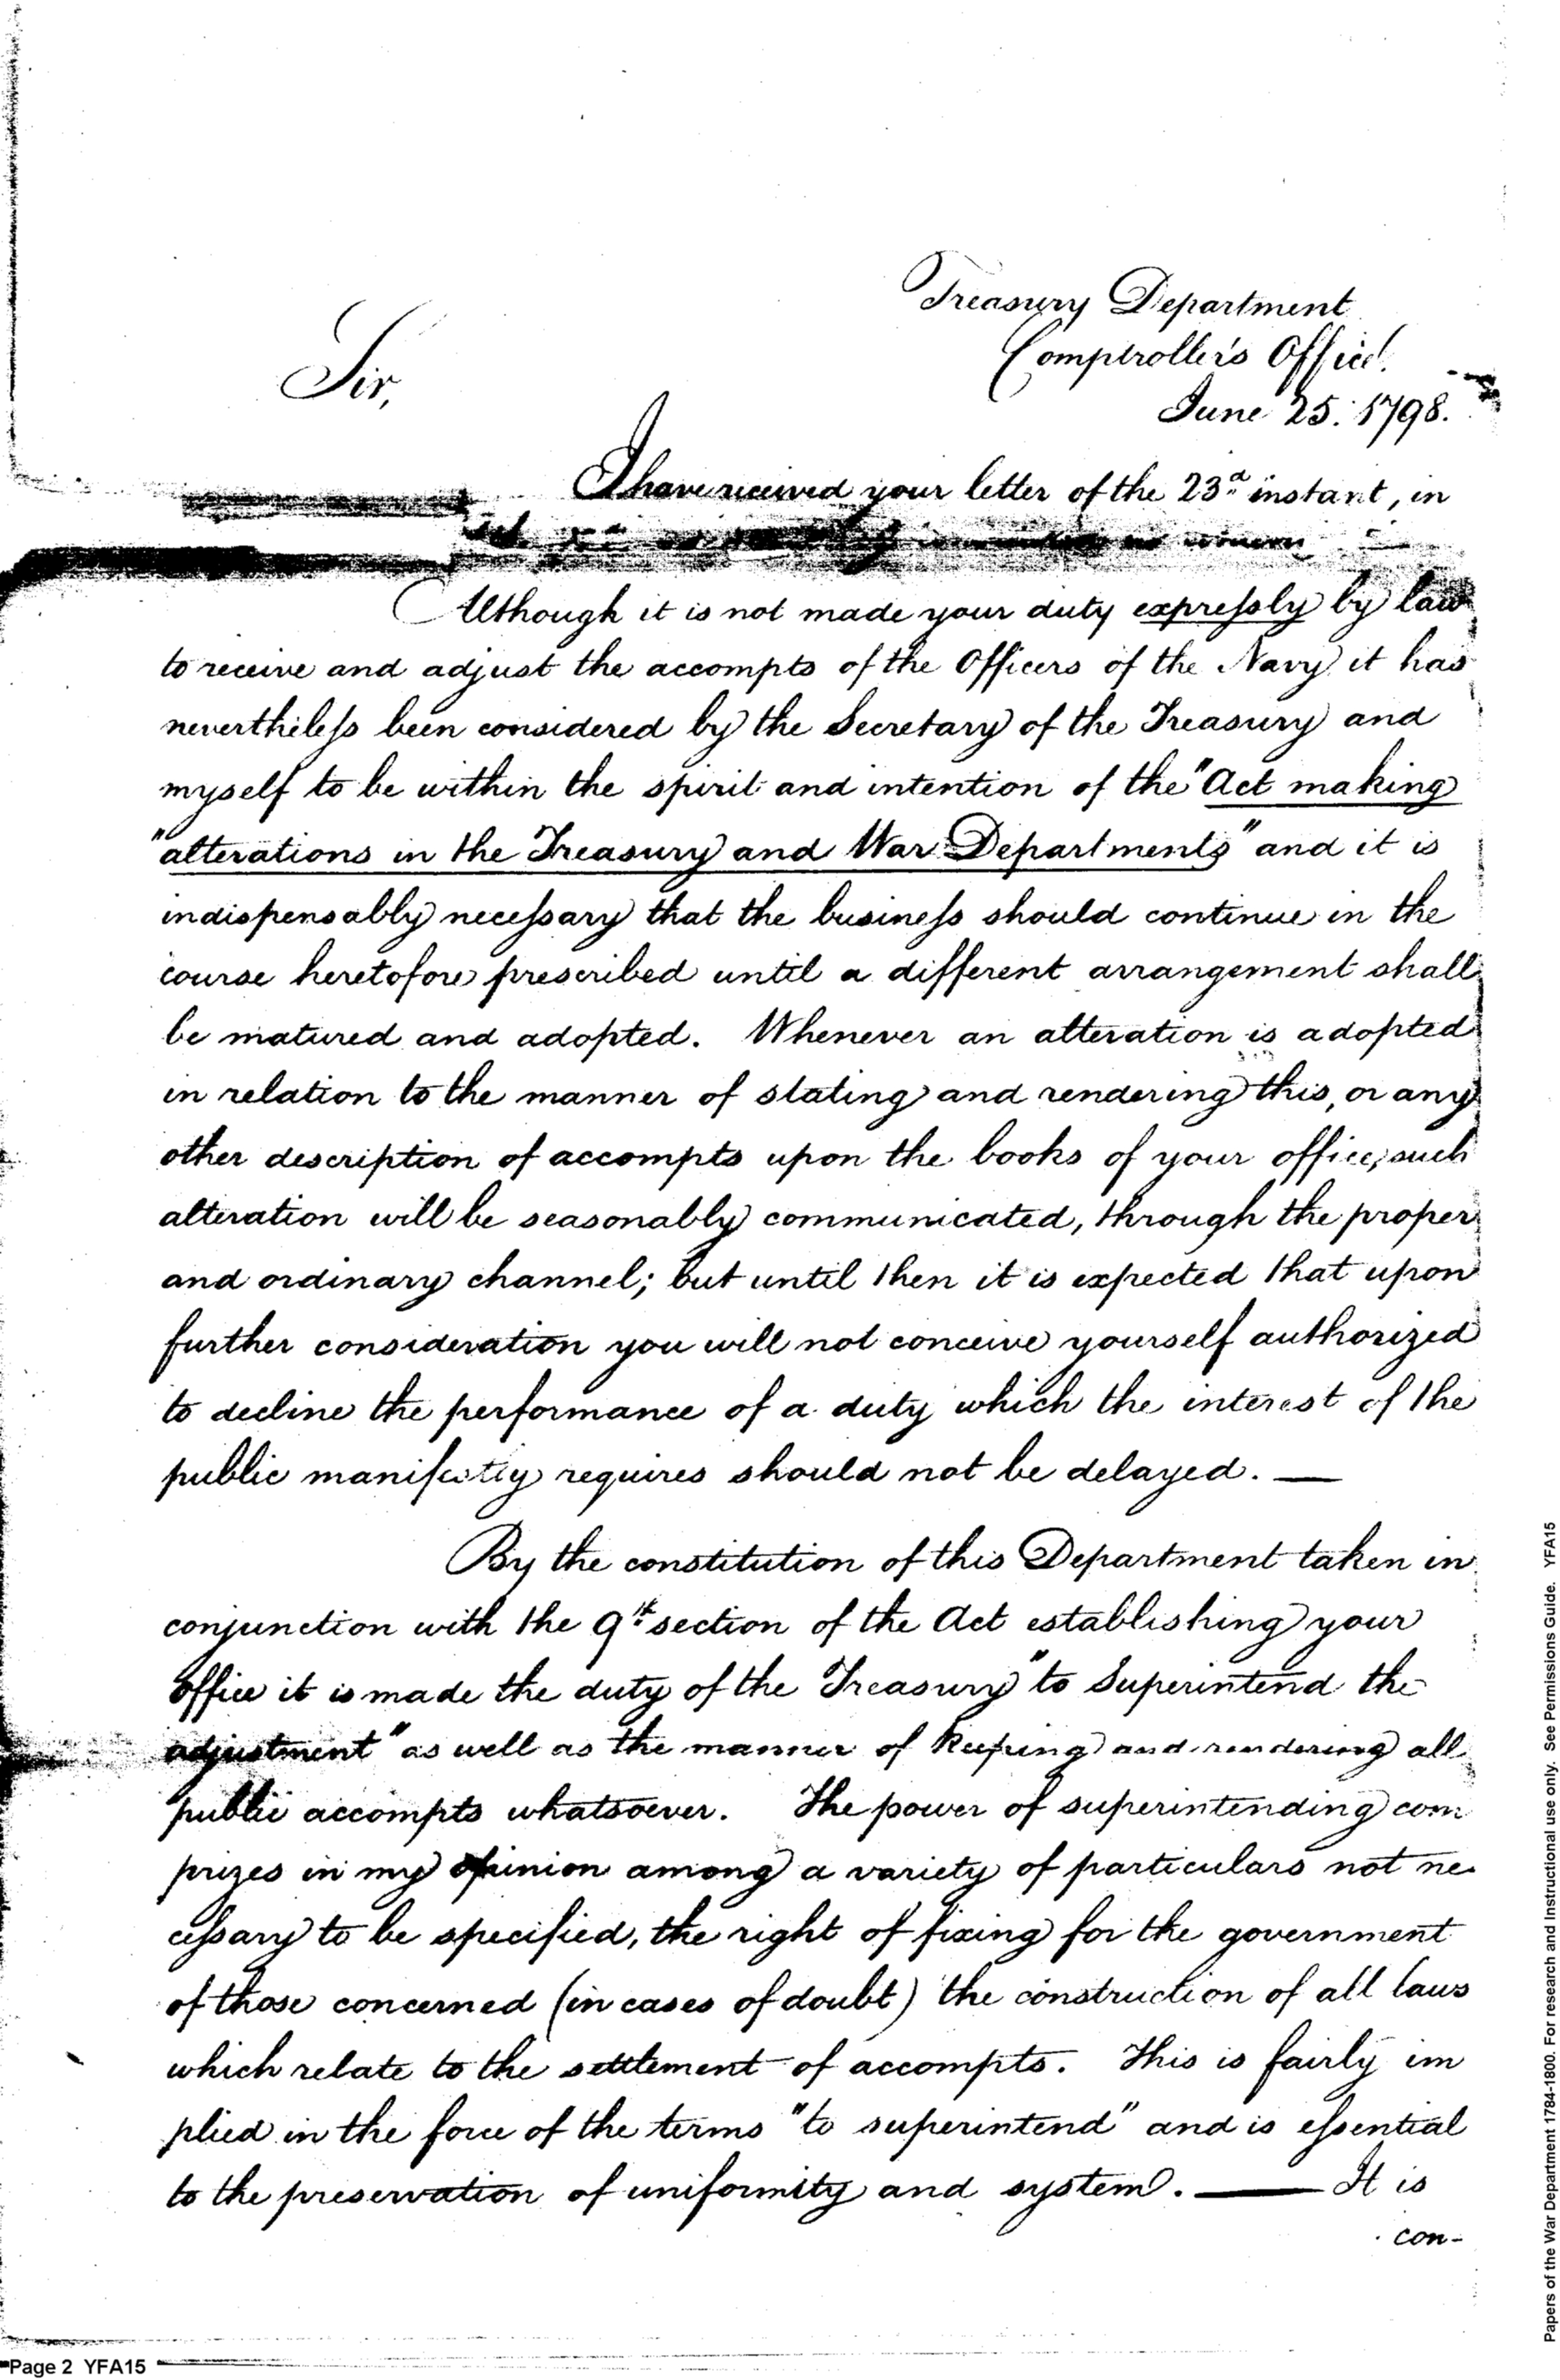 Treasury Department
Comptroller's Office.
June 25. 1798.
Sir,
I have received your letter of the 23d instant, in
Although it is not made your duty expressly by law
to receive and adjust the accompts of the Officers of the Navy it has
nevertheless been considered by the Secretary of the Treasury and
myself to be within the spirit and intention of the "Act making
"alterations in the Treasury and War Departments" and it is
indispensably necessary that the business should continue in the
course heretofore prescribed until a different arrangement shall
be matured and adopted. Whenever an alteration is adopted
in relation to the manner of stating and rendering this, or any
other description of accompts upon the books of your office, such
alteration will be seasonably communicated, through the proper
and ordinary channel; but until then it is expected that upon
further consideration you will not conceive yourself authorized
to decline the performance of a duty which the interest of the
public manifestly requires should not be delayed. —
By the constitution of this Department taken in
conjunction with the 9th section of the Act establishing your
office it is made the duty of the Treasury "to Superintend the
adjustment" as well as the manner of Keeping and rendering all
public accompts whatsoever. The power of superintending com
prizes in my opinion among a variety of particulars not ne
cessary to be specified, the right of fixing for the government
of those concerned (in cases of doubt) the construction of all laws
which relate to the settlement of accompts. This is fairly im
plied in the force of the terms "to superintend" and is essential
to the preservation of uniformity and system. — It is
con-
Page 2 YFA15
Papers of the War Department 1784-1800. For research and Instructional use only. See Permissions Guide. YFA15